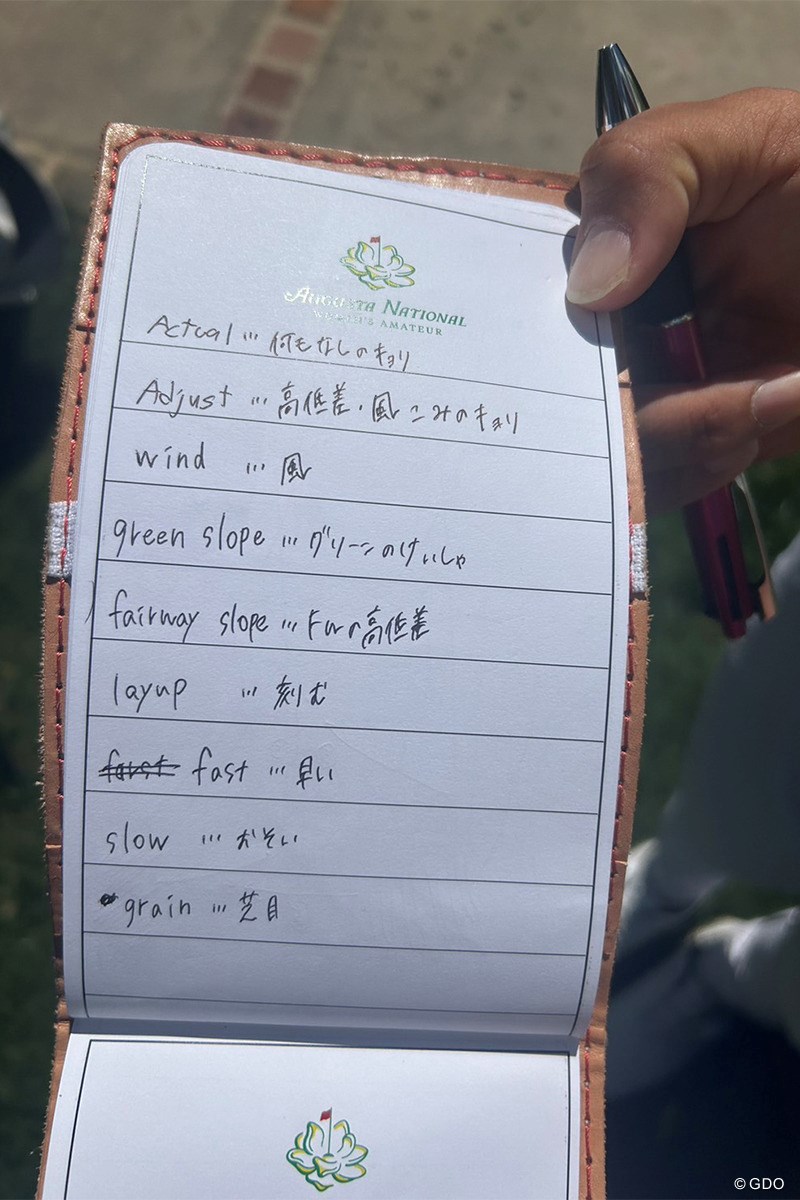 AUGUSTA NATIONAL
WOMEN'S AMATEUR
Actual … 何もなしのキョリ
Adjust … 高低差・風こみのキョリ
wind … 風
green slope … グリーンのけいしゃ
fairway slope … FWの高低差
layup … 刻む
fast … 早い
slow … おそい
grain … 芝目
© GDO